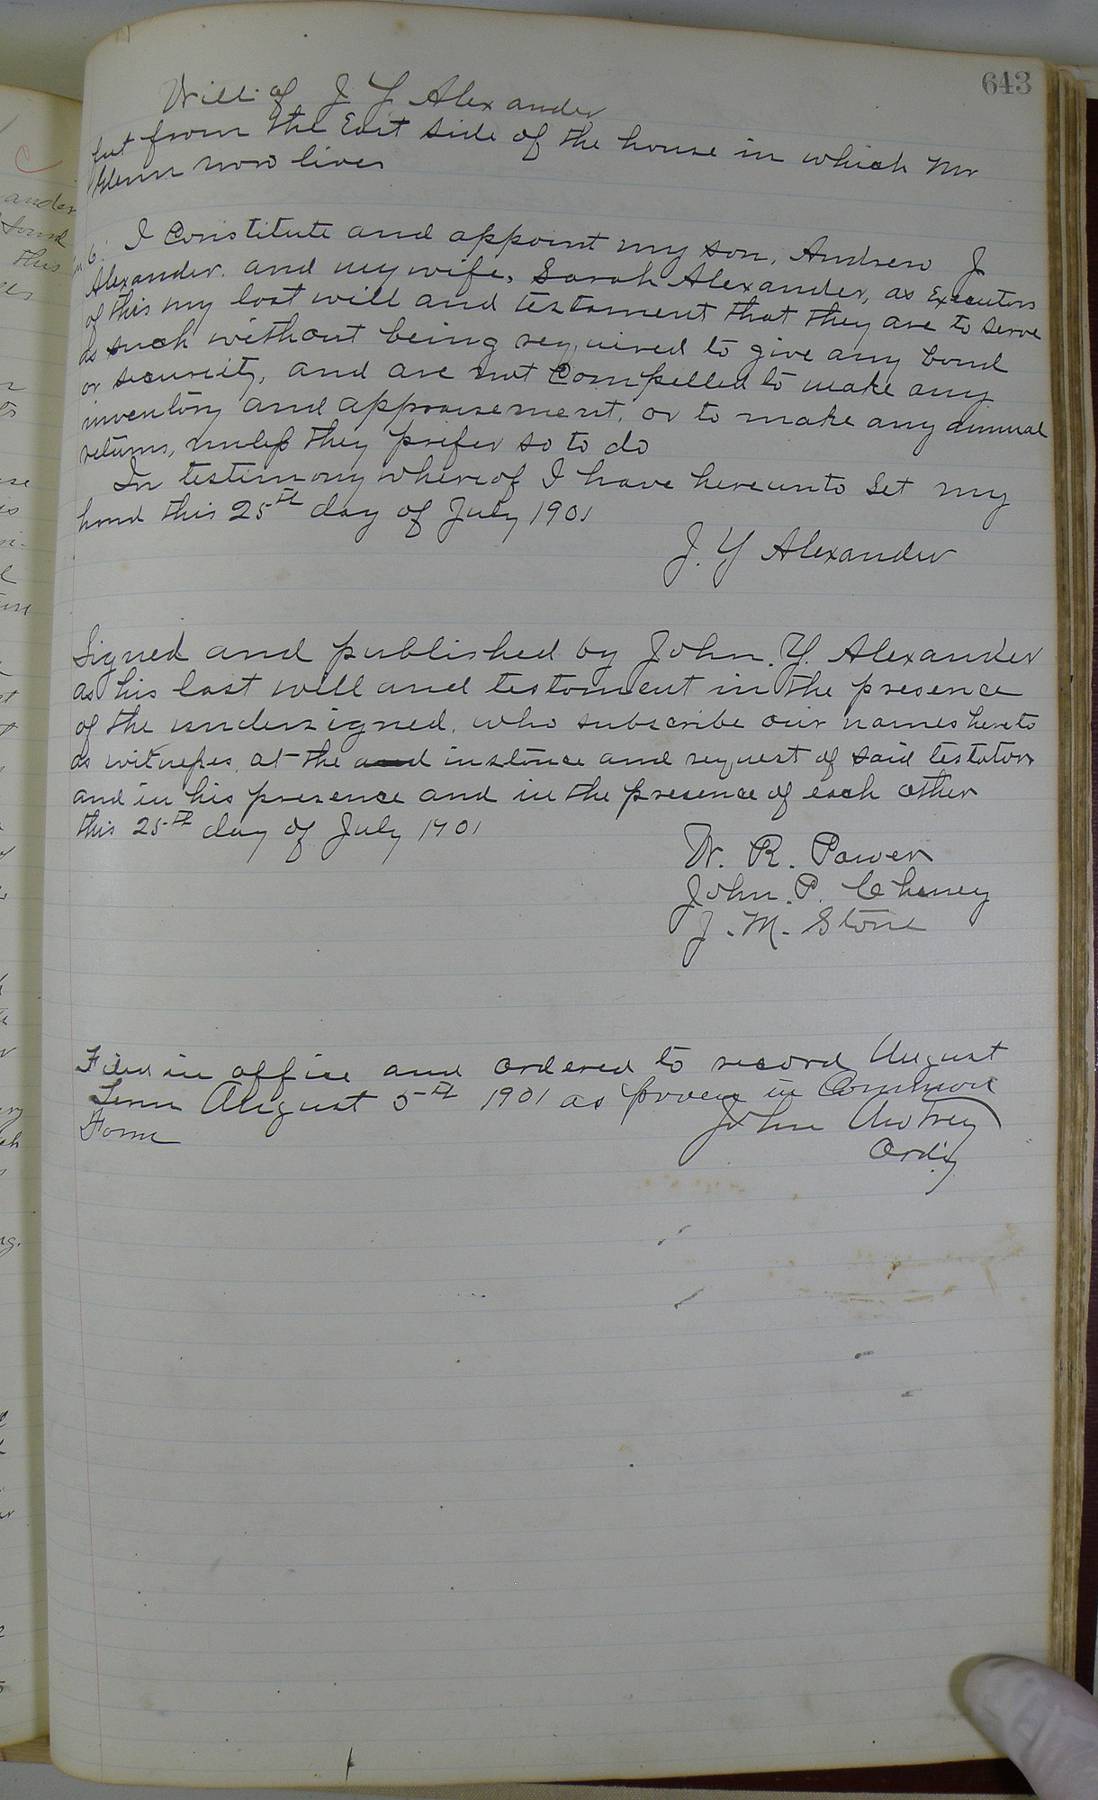 643
Will of J Y Alexander
feet from the East side of the house in which Mr
Glenn now lives
6. I Constitute and appoint my son, Andrew J
Alexander. and my wife, Sarah Alexander, as Executors
of this my last will and testament that they are to serve
as such without being required to give any bond
or security, and are not Compelled to make any
inventory and appraisement, or to make any annual
returns, unless they prefer so to do
In testimony whereof I have hereunto Set my
hand this 25th day of July 1901
J. Y Alexander
Signed and published by John. Y. Alexander
as his last will and testament in the presence
of the undersigned, who subscribe our names hereto
as witnesses, at the and instance and request of said testator
and in his presence and in the presence of each other
this 25th day of July 1901
W. R. Power
John. P. Cheney
J. M. Stone
Filed in office and ordered to record August
Term August 5th 1901 as proven in Common
Form
John Awtrey
Ordy